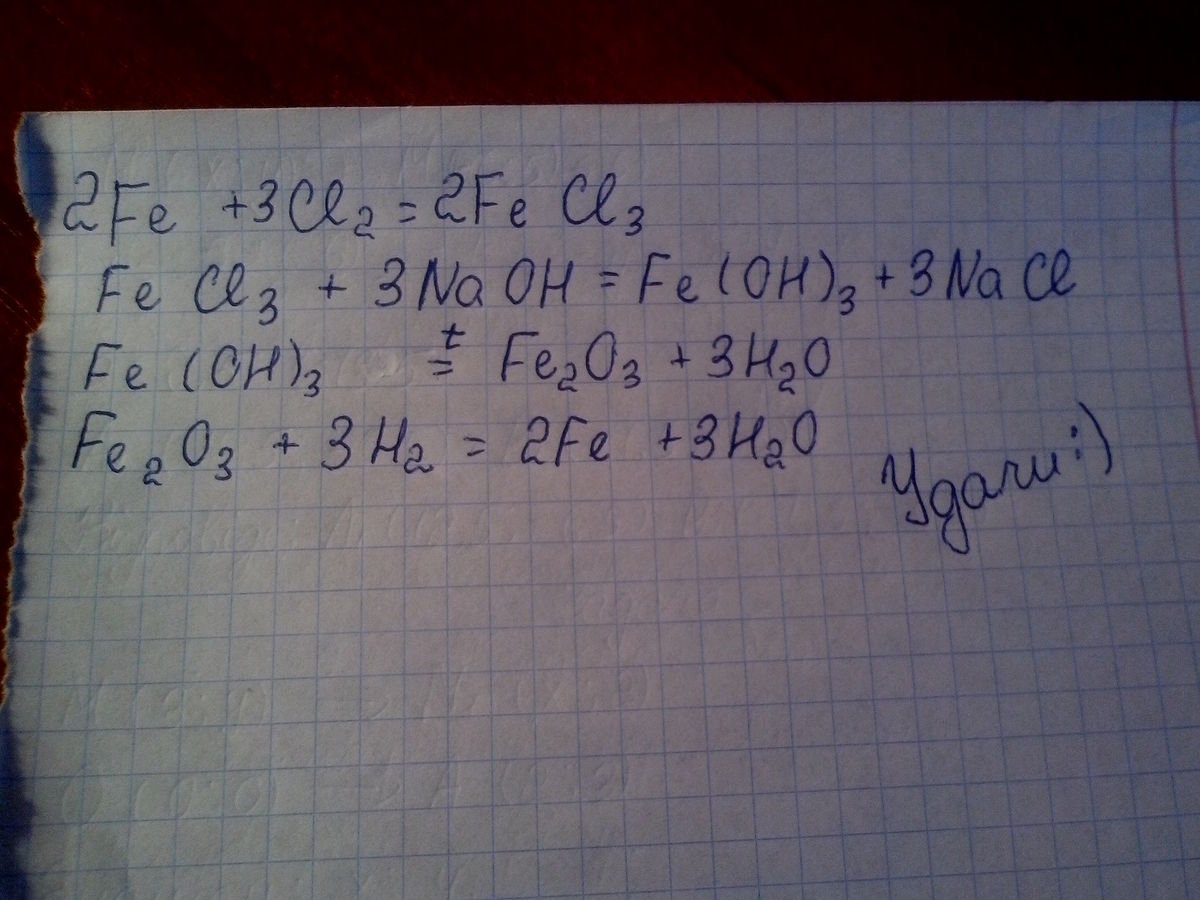 2Fe +3Cl₂ = 2Fe Cl₃
Fe Cl₃ + 3NaOH = Fe(OH)₃ + 3NaCl
Fe (OH)₃ =ᵗ Fe₂O₃ + 3H₂O
Fe₂O₃ + 3H₂ = 2Fe +3H₂O
Удачи :)